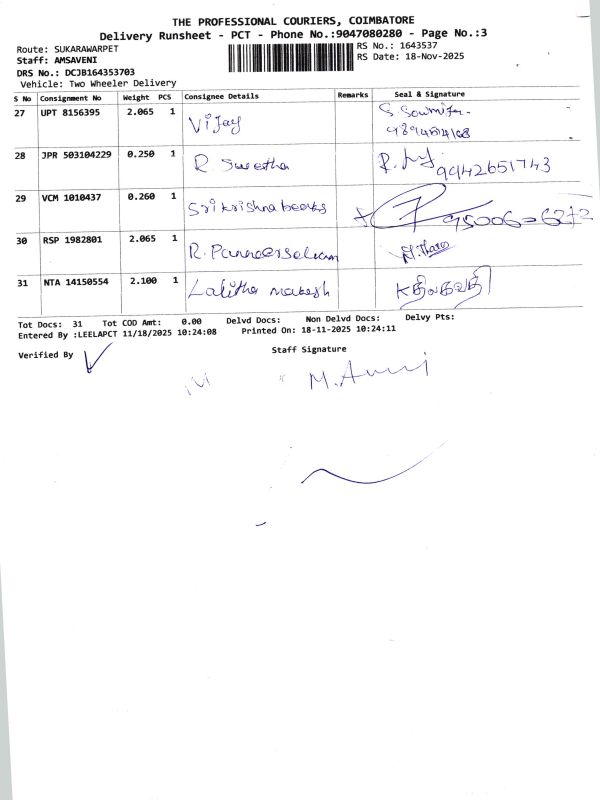 THE PROFESSIONAL COURIERS, COIMBATORE
Delivery Runsheet - PCT - Phone No.:9047080280 - Page No.:3
Route: SUKARAWARPET
RS No.: 1643537
Staff: AMSAVENI
RS Date: 18-Nov-2025
DRS No.: DCJB164353703
Vehicle: Two Wheeler Delivery
S No Consignment No Weight PCS Consignee Details Remarks Seal & Signature
27 UPT 8156395 2.065 1 Vijay
28 JPR 503104229 0.250 1 R. Swetha 9942651743
29 VCM 1010437 0.260 1 Srikrishna beeks
30 RSP 1982801 2.065 1 R. Panneerselvam
31 NTA 14150554 2.100 1 Lalitha makesh
Tot Docs: 31 Tot COD Amt: 0.00 Delvd Docs: Non Delvd Docs: Delvy Pts:
Entered By :LEELAPCT 11/18/2025 10:24:08 Printed On: 18-11-2025 10:24:11
Verified By
Staff Signature